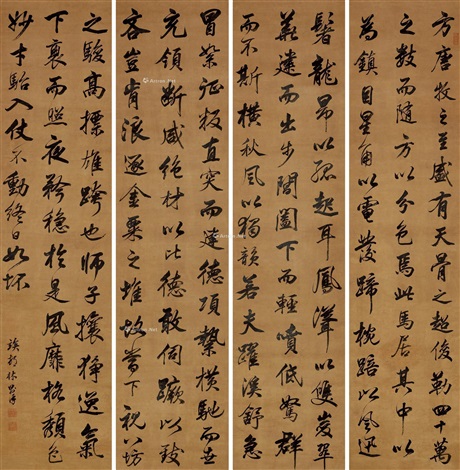 方唐牧之至盛有天骨之超俊勒四十萬
之數而隨方以分色焉此馬居其中以
為鎮目星角以電發蹄椀踣以風迅
鬐龍昂以孤起耳鳳聳以雙峻翠
華建而出步閶闔下而輕噴低駑群
而不斯橫秋風以獨韻若夫躍溪舒急
冒絮征叛直突而建德項縶橫馳而世
充領斷咸絕材以比德敢伺蹶以致
吝豈肯浪逐金粟之堆故當下視八坊
之駿高標雄跨也師子攘獰逸氣
下衰而照夜矜穩於是風靡格頹色
妙才駘入仗不動終日如坏